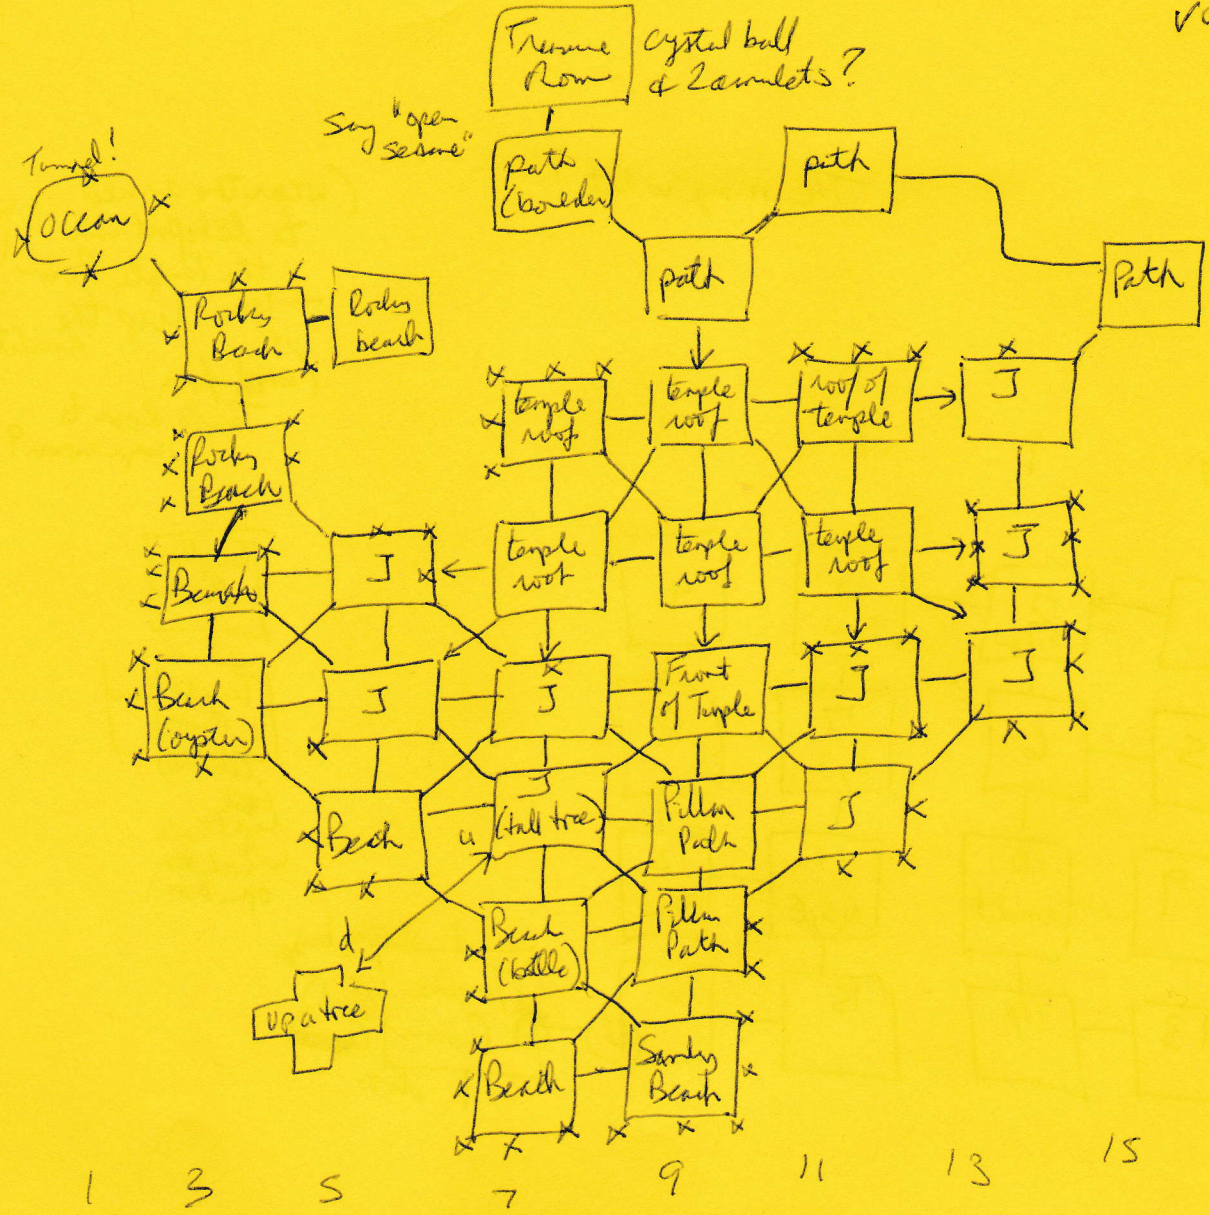 Treasure
Room
crystal ball
& 2 amulets?
Say "open
sesame"
path
(boulder)
path
Tunnel!
OCEAN
path
Path
Rocky
Beach
Rocky
beach
temple
roof
temple
roof
roof of
temple
J
Rocky
Beach
J
temple
roof
temple
roof
temple
roof
J
Beach
(oyster)
J
J
Front
of Temple
J
J
Beach
u
J
(tall tree)
Pillar
Path
J
d
Beach
(bottle)
Pillar
Path
Up a tree
Beach
Sandy
Beach
1 3 5 7 9 11 13 15